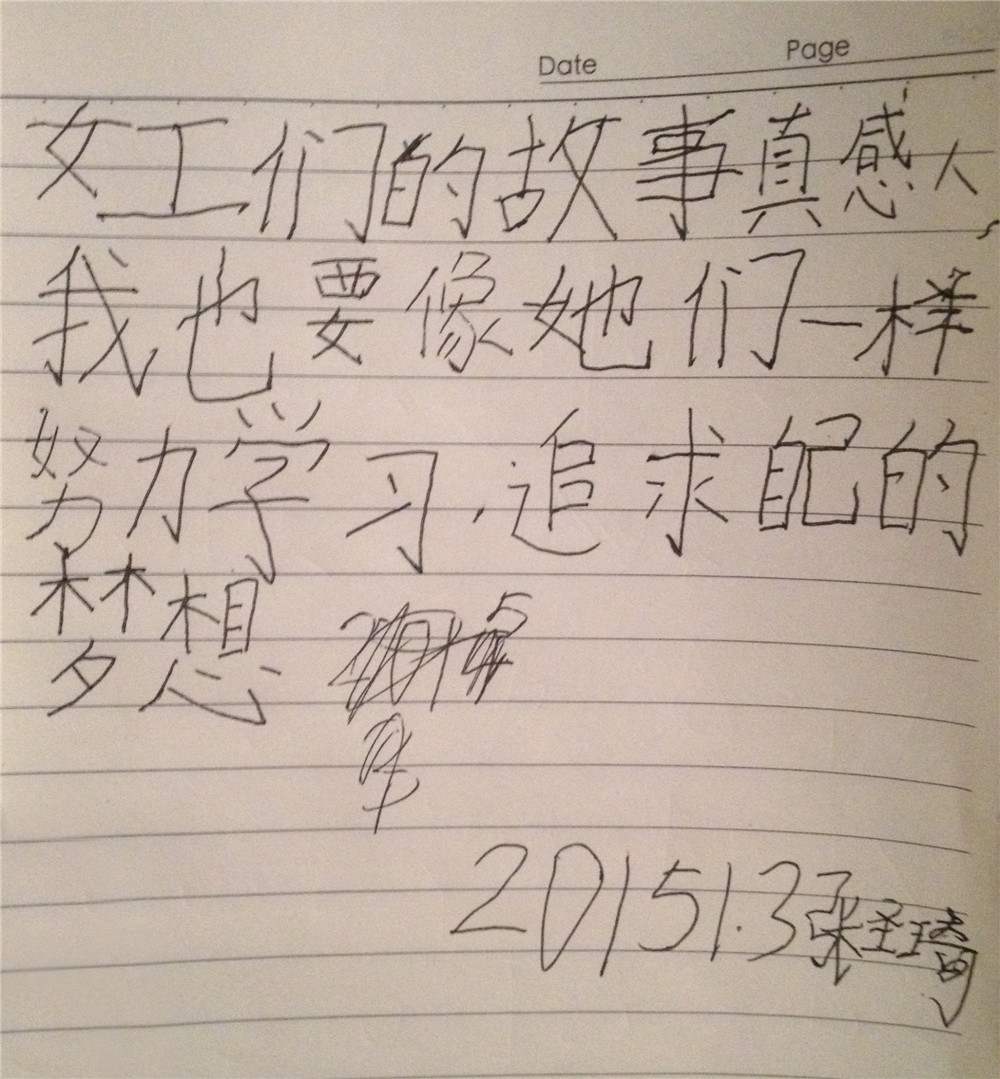 Date Page
女工们的故事真感人,
我也要像她们一样
努力学习,追求自己的
梦想
2015 1.3 张圣琦